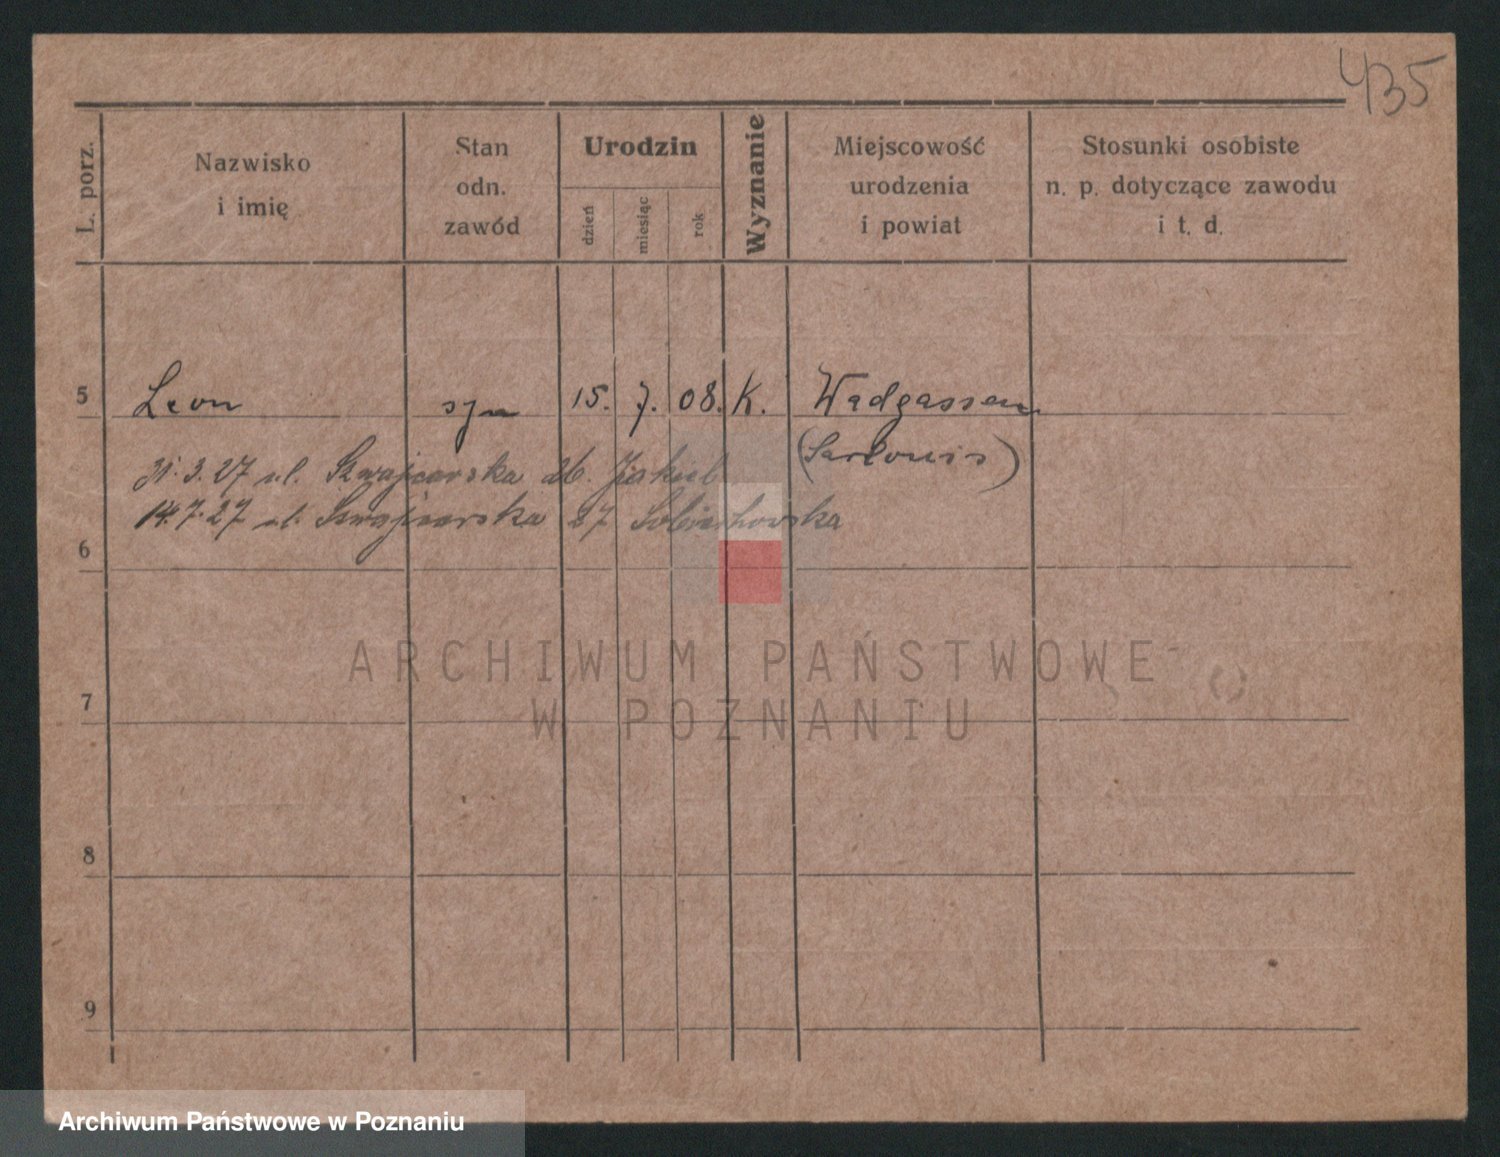 435
L. porz.
Nazwisko
i imię
Stan
odn.
zawód
Urodzin
dzień
miesiąc
rok
Wyznanie
Miejscowość
urodzenia
i powiat
Stosunki osobiste
n. p. dotyczące zawodu
i t. d.
5 Leon syn 15. 7. 08. K. Wadgassen
(Sarlouis)
31.3.27 ul. Szwajcarska 26. Jakiel
14.7.27 ul. Szwajcarska 27
6
7
8
9
ARCHIWUM PAŃSTWOWE
W POZNANIU
Archiwum Państwowe w Poznaniu